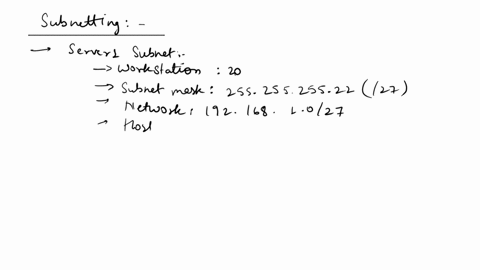 Subnetting: -
→ Server1 Subnet:-
→ Workstation : 20
→ Subnet mask: 255.255.255.22 (/27)
→ Network: 192.168. 1.0/27
→ Host